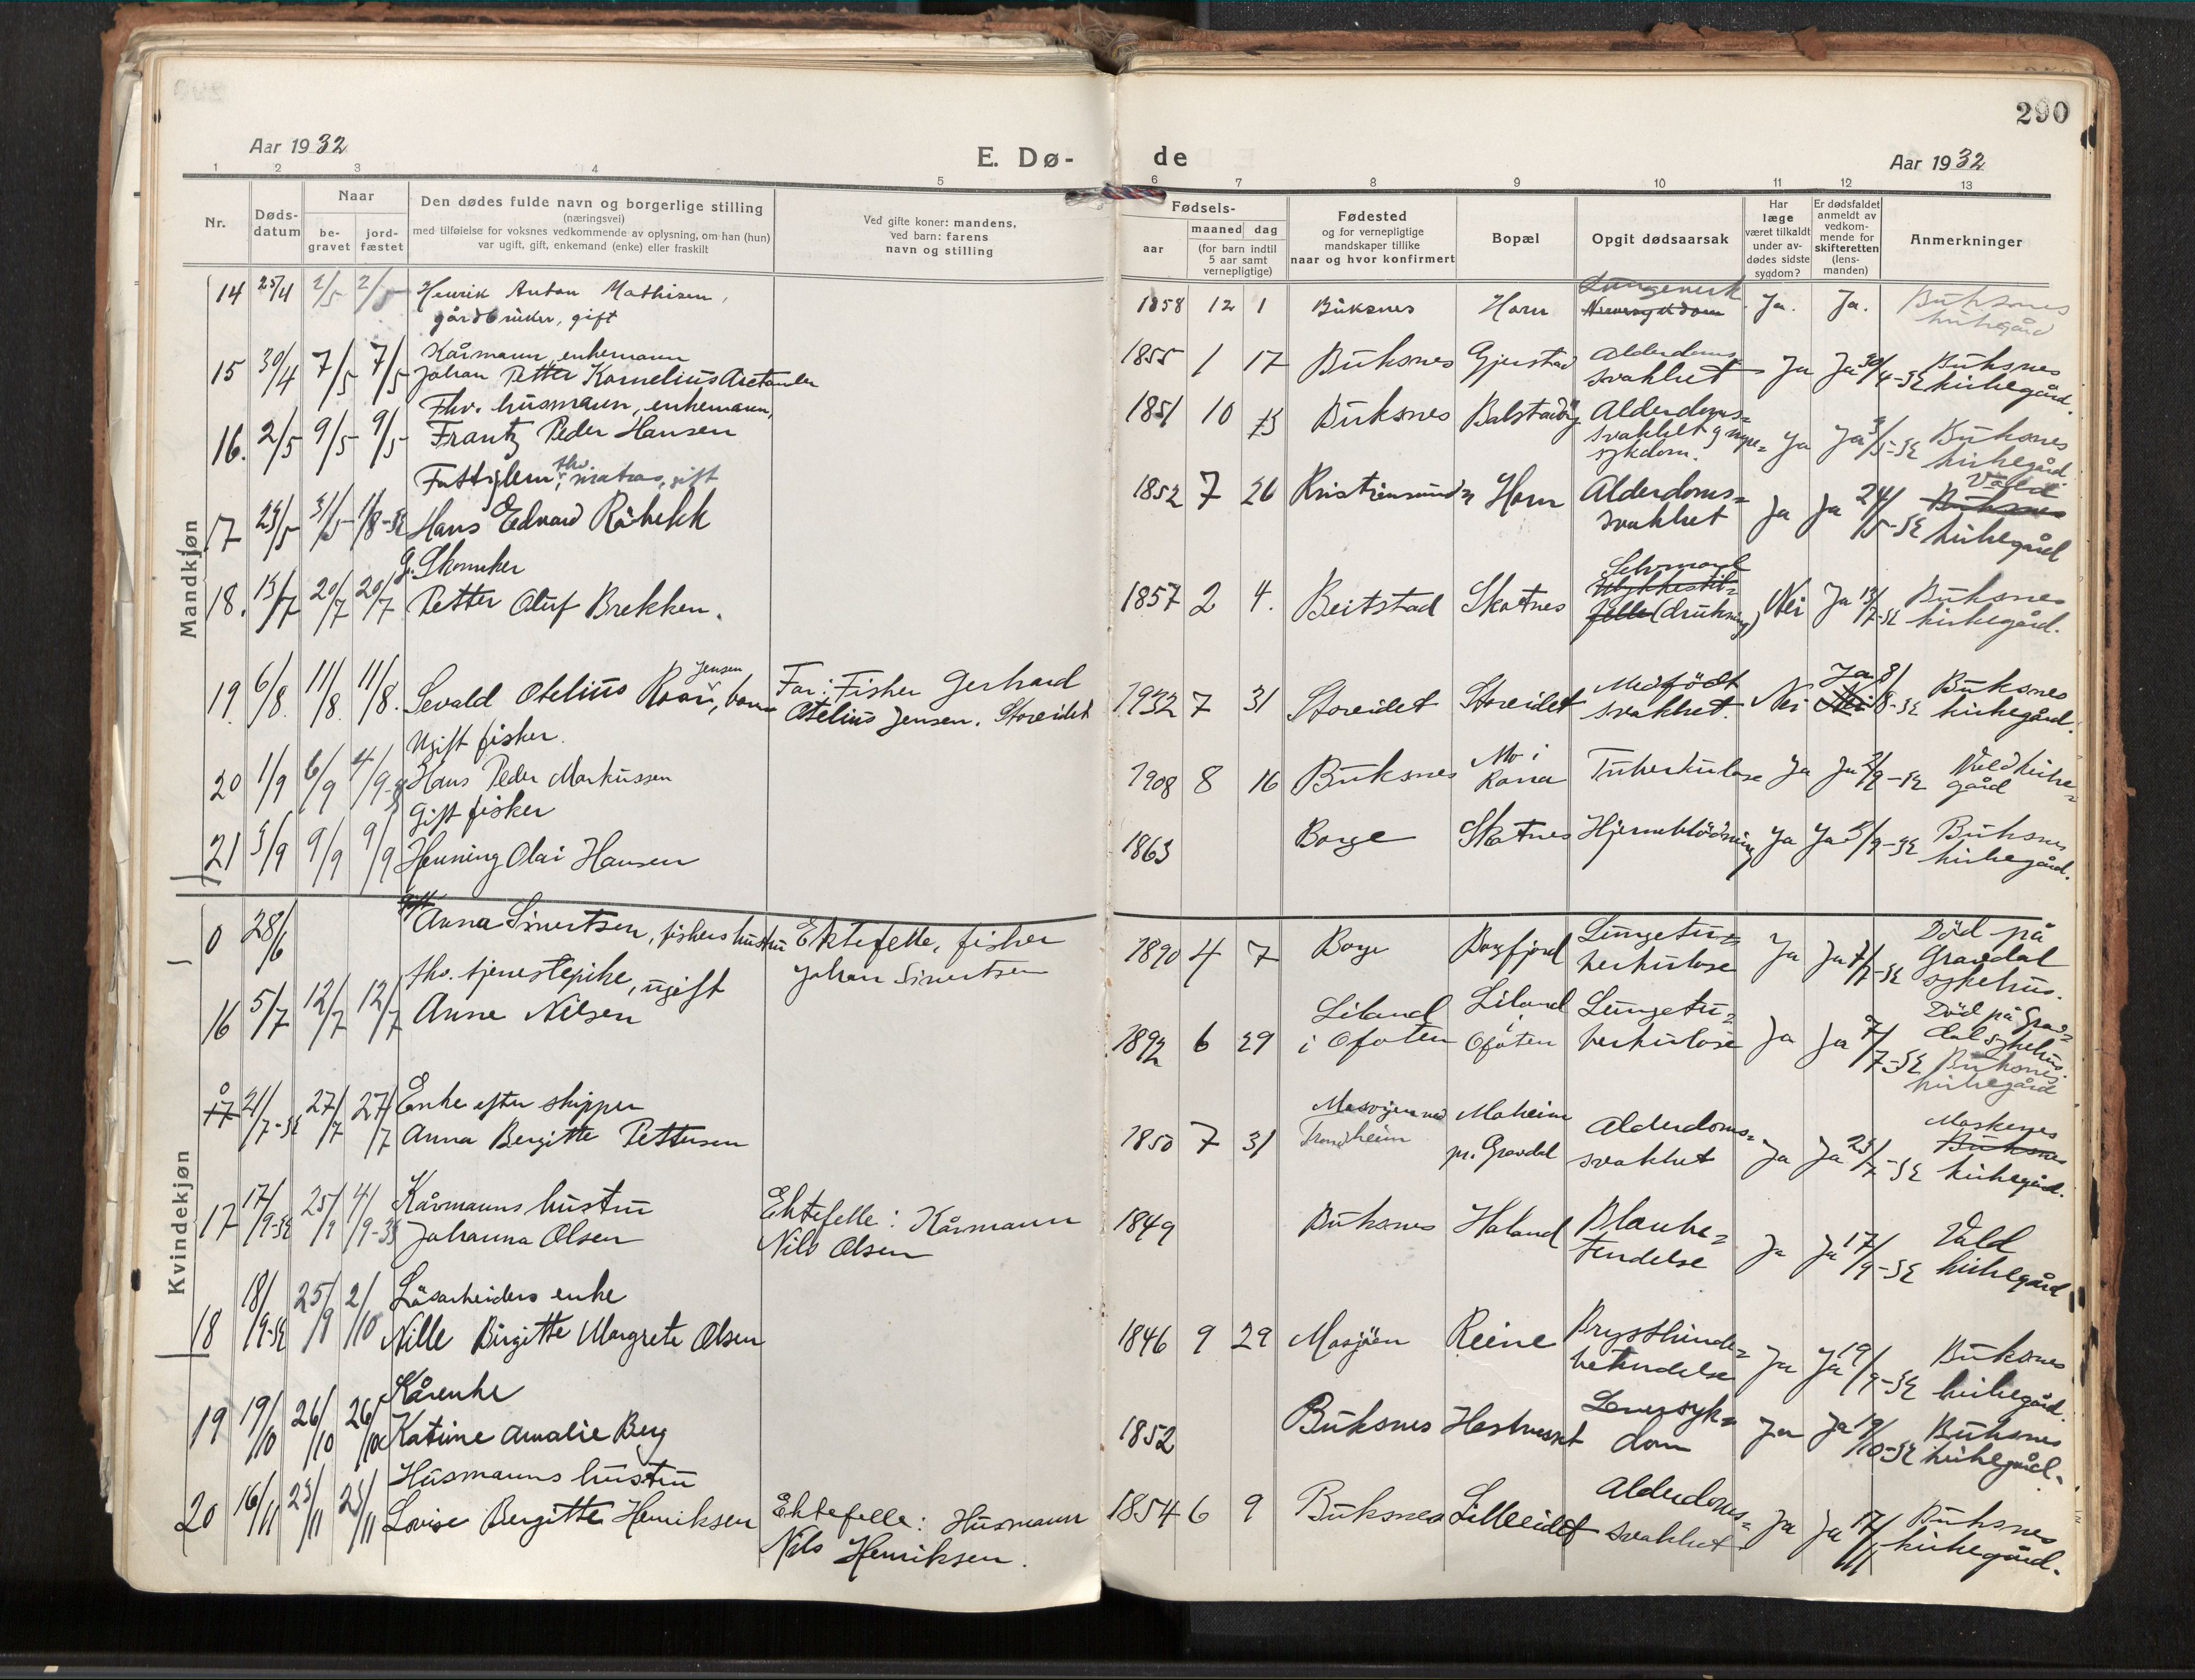 290
Aar 1932
E. Dø-
de
Aar 1932
1 2 3 4 5 6 7 8 9 10 11 12 13
Nr.
Døds-
datum
Naar
be-
gravet
jord-
fæstet
Den dødes fulde navn og borgerlige stilling
(næringsvei)
med tilføielse for voksnes vedkommende av oplysning, om han (hun)
var ugift, gift, enkemand (enke) eller fraskilt
Ved gifte koner: mandens,
ved barn: farens
navn og stilling
Fødsels-
aar
maaned dag
(for barn indtil
5 aar samt
vernepligtige)
Fødested
og for vernepligtige
mandskaper tillike
naar og hvor konfirmert
Bopæl
Opgit dødsaarsak
Har
læge
været tilkaldt
under av-
dødes sidste
sygdom?
Er dødsfaldet
anmeldt av
vedkom-
mende for
skifteretten
(lens-
manden)
Anmerkninger
Mandkjøn
14 25/4 2/5 2/5 Henrik Anton Mathisen,
gårdbruker, gift
1858 12 1 Buksnes Horn Ja. Ja. Buksnes
kirkegård
Kårmann, enkemann
15 30/4 7/5 7/5 Johan Petter Kornelius
1855 1 17 Buksnes Gjerstad Alderdoms
svakhet Ja Ja 30/4-32 Buksnes
kirkegård.
Fhv. husmann, enkemann,
16. 2/5 9/5 9/5 Frantz Peder Hansen
1851 10 Buksnes Balstadøy Alderdoms=
svakhet og
sykdom. Ja Ja /5-32 Buksnes
kirkegård
Fattiglem, fhv. matros, gift
17 23/5 31/5 1/8-32 Hans Edvard Röbekk
1852 7 26 Kristiansund N Horn Alderdoms=
svakhet Ja Ja 24/5-32 Vold
Buksnes
kirkegård
G. Skomker
18. 13/7 20/7 20/7 Petter Oluf Brekken.
1857 2 4. Beitstad Skotnes Selvmord
Ulykkestil=
felle (drukning) Nei Ja 13/7-32 Buksnes
kirkegård.
19. 6/8. 11/8. 11/8. Sevald Otelius Roar Jensen, barn
Far: Fisker Gerhard
Otelius Jensen. Storeidet
1932 7 31 Storeidet Storeidet Medfödt
svakhet. Nei Ja 8/8-32
Nei
Buksnes
kirkegård.
Ugift fisker.
20 1/9 6/9 Hans Peder Markussen
1908 8 16 Buksnes Mo i
Rana Tuberkulose Ja Ja 2/9-32 Vold kirke=
gård
Gift fisker
21 3/9 9/9 9/9 Henning Olai Hansen
1863 Borge Skotnes Hjerneblödning Ja Ja 5/9-32 Buksnes
kirkegård.
Kvindekjøn
0 28/6 Anna Sivertsen, fiskers hustru
Ektefelle, fisker
Johan Sivertsen
1890 4 7 Borge Borgfjord Lungetu=
berkulose Ja Ja 7/7-32 Död på
Gravdal
sykehus.
fhv. tjenestepike, ugift
16 5/7 12/7 12/7 Anne Nilsen
1892 6 29 Liland
i Ofoten Liland
i
Ofoten Lungetu=
berkulose Ja Ja 7/7-32 Död på Grav=
dal sykehus.
Buksnes
kirkegård
0
17 21/7-32 27/7 27/7 Enke efter skipper
Anna Bergitte Pettersen
1850 7 31 Trondheim Moheim
pr. Gravdal Alderdoms=
svakhet Ja Ja 23/7-32 Moskenes
Buksnes
kirkegård.
17 17/9-32 25/9 4/9-33 Kårmanns hustru
Johanna Olsen
Ektefelle: Kårmann
Nils Olsen
1849 Buksnes Haland Ja Ja 17/9-32 Vold
kirkegård
18 18/9-32 25/9 2/10 Lösarbeiders enke
Nille Birgitte Margrete Olsen
1846 9 29 Mosjöen Reine Brysthinde=
betendelse Ja Ja 19/9-32 Buksnes
kirkegård.
Kårenke
19 19/10 26/10 26/10 Katrine Amalie Berg
1852 Buksnes Hestneset dom Ja Ja 19/10-32 Buksnes
kirkegård.
Husmanns hustru
20 16/11 23/11 23/11 Lovise Bergitte Henriksen
Ektefelle: Husmann
Nils Henriksen.
1854 6 9 Buksnes Lilleeidet Alderdoms=
svakhet Ja Ja 17/11 Buksnes
kirkegård.